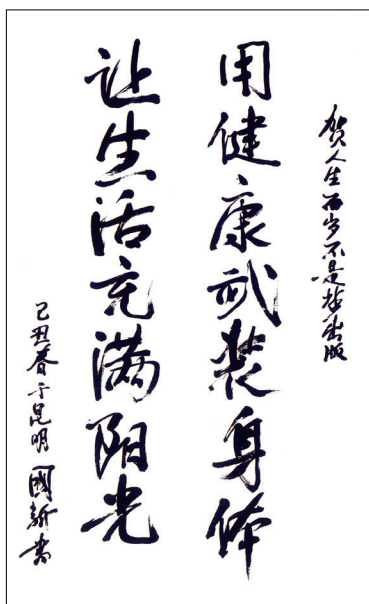 贺人生百岁不是梦出版
用健康武装身体
让生活充满阳光
己丑春于昆明国新书